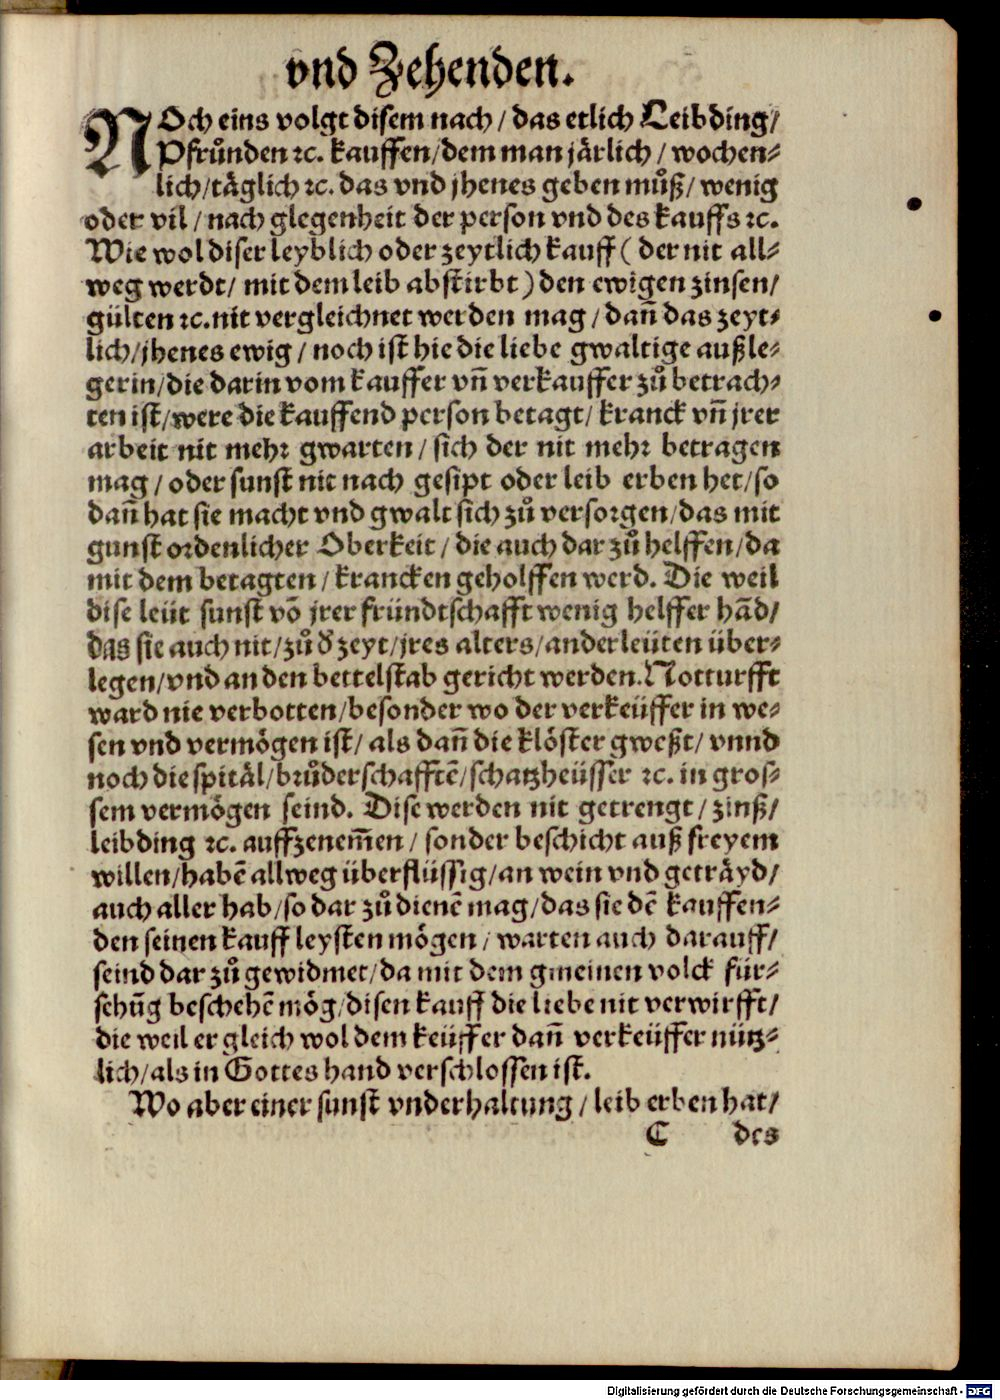 vnd Zehenden.
NOch eins volgt disem nach / das etlich Leibding /
Pfrůnden ꝛc. kauffen / dem man järlich / wochen⸗
lich / täglich ꝛc. das vnd jhenes geben můß / wenig
oder vil / nach glegenheit der person vnd des kauffs ꝛc.
Wie wol diser leyblich oder zeytlich kauff ( der nit all⸗
weg werdt / mit dem leib abstirbt ) den ewigen zinsen /
gülten ꝛc. nit vergleichnet werden mag / dañ das zeyt⸗
lich / jhenes ewig / noch ist hie die liebe gwaltige außle⸗
gerin / die darin vom kauffer vñ verkauffer zů betrach⸗
ten ist / were die kauffend person betagt / kranck vñ jrer
arbeit nit mehr gwarten / sich der nit mehr betragen
mag / oder sunst nit nach gesipt oder leib erben het / so
dañ hat sie macht vnd gwalt sich zů versorgen / das mit
gunst ordenlicher Oberkeit / die auch dar zů helffen / da
mit dem betagten / krancken geholffen werd. Die weil
dise leüt sunst võ jrer fründtschafft wenig helffer hãd /
das sie auch nit / zů d̕ zeyt / jres alters / ander leüten über⸗
legen / vnd an den bettelstab gericht werden. Notturfft
ward nie verbotten / besonder wo der verkeüffer in we⸗
sen vnd vermögen ist / als dañ die klöster gweßt / vnnd
noch die spitäl / brůderschafftẽ / schatzheüsser ꝛc. in gros⸗
sem vermögen seind. Dise werden nit getrengt / zinß /
leibding ꝛc. auffzenem̃en / sonder beschicht auß freyem
willen / habẽ allweg überflüssig / an wein vnd geträyd /
auch aller hab / so dar zů dienẽ mag / das sie dẽ kauffen⸗
den seinen kauff leysten mögen / warten auch darauff /
seind dar zů gewidmet / da mit dem gmeinen volck für⸗
sehũg beschehẽ mög / disen kauff die liebe nit verwirfft /
die weil er gleich wol dem keüffer dañ verkeüffer nütz⸗
lich / als in Gottes hand verschlossen ist.
Wo aber einer sunst vnderhaltung / leib erben hat /
C des
Digitalisierung gefördert durch die Deutsche Forschungsgemeinschaft - DFG